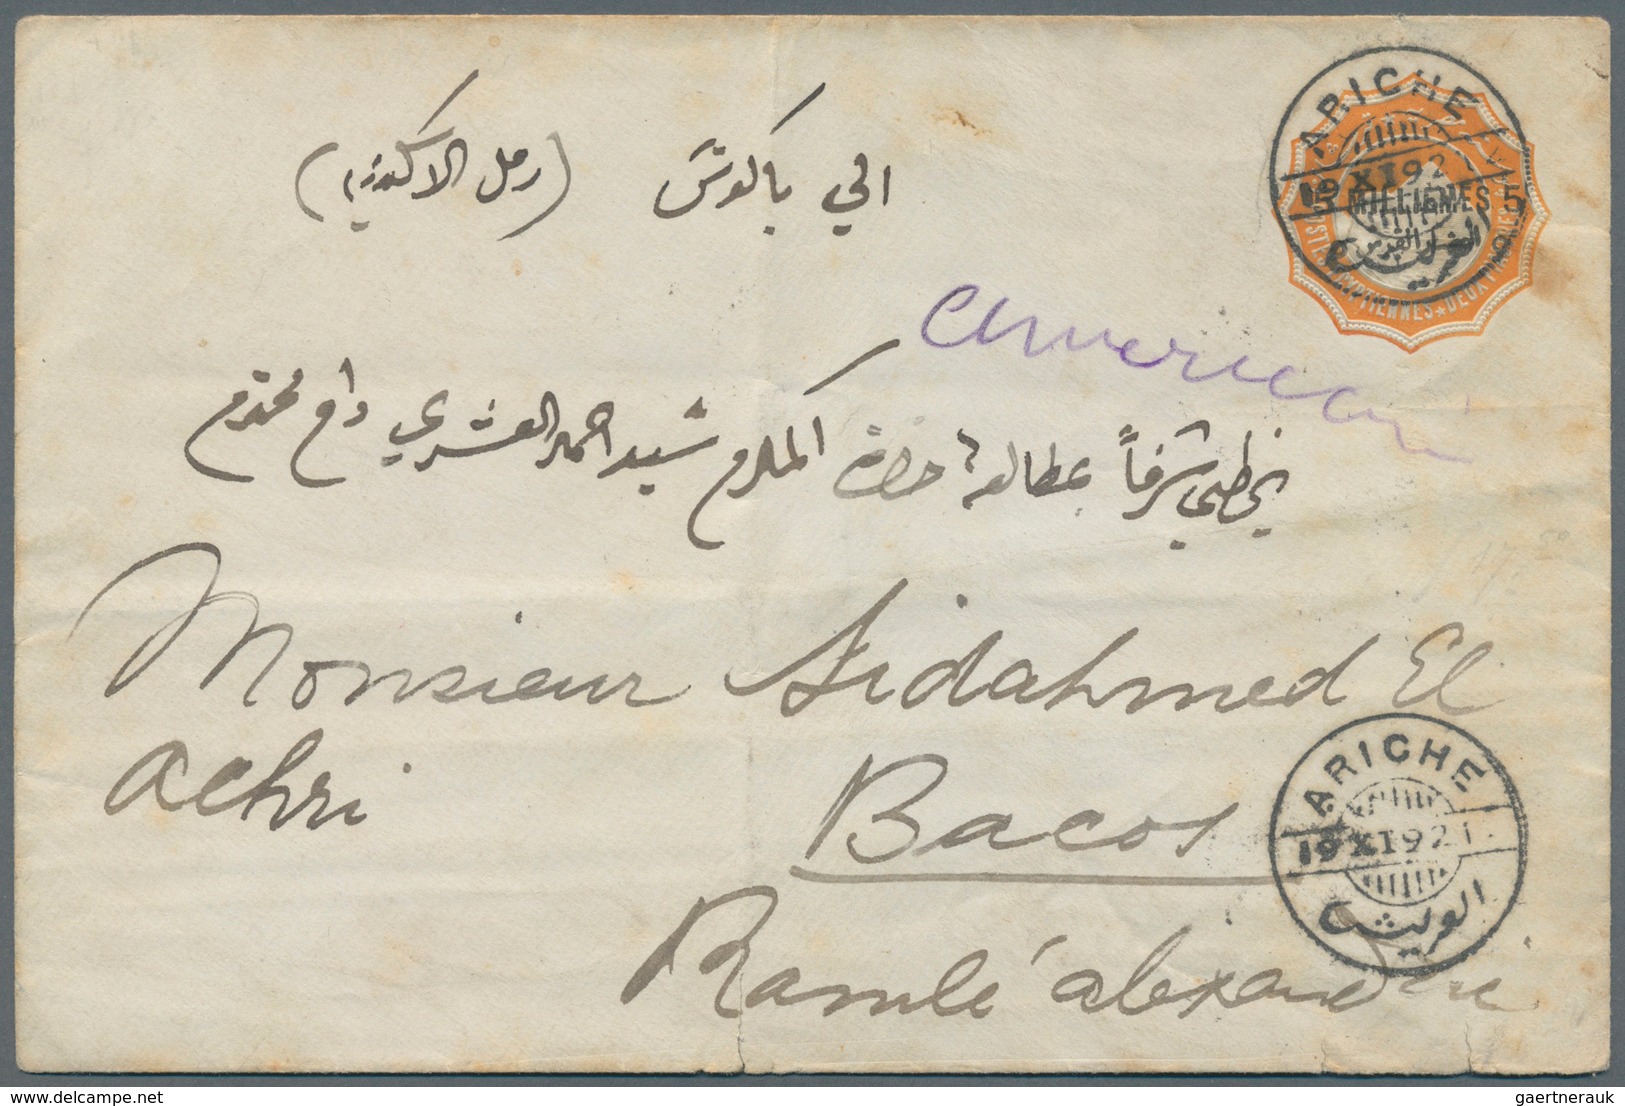 ARICHE
19 XI 92
5 MILLIEMES 5
العريش
الي باكوس (رمل الاسكندرية)
American
يحظي شرفاً بمطالعة حضرة المكرم سيد احمد العشري دام محترم
Monsieur Sidahmed El
achri
Bacos
Ramlé alexandrie
ARICHE
19 XI 92 1.
العريش
gaertnerauk